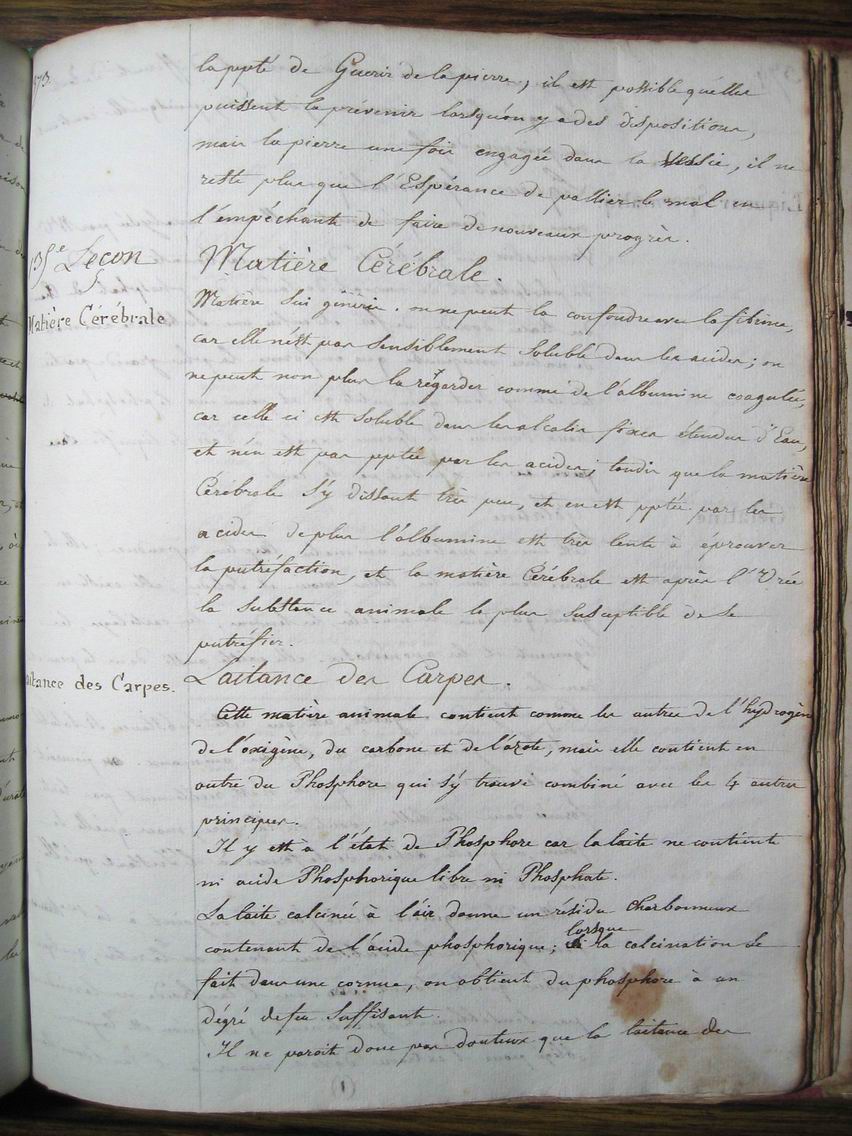 la ppté de Guerir de la pierre, il est possible qu'elles
puissent la prevenir lorsqu'on y a des dispositions,
mais la pierre une fois engagée dans la Vessie, il ne
reste plus que l'Espérance de pallier le mal en
l'empéchant de faire de nouveaux progrès.
Leçon
Matière Cérébrale.
Matière Cérébrale
Matière Sui géneris. on ne peut la confondre avec la fibrine,
car elle n'est pas sensiblement soluble dans les acides; on
ne peut non plus la regarder comme de l'albumine coagulée,
car celle ci est soluble dans les alcalis fixes étendus d'Eau,
et n'en est pas pptée par les acides; tandis que la matière
Cérébrale s'y dissout très peu, et en est pptée par les
acides de plus l'albumine est très lente à éprouver
la putréfaction, et la matière Cérébrale est après l'Urée
la substance animale la plus susceptible de se
putréfier.
Laitance des Carpes.
aitance des Carpes.
Cette matière animale contient comme les autres de l'hydrogène
de l'oxigène, du carbone et de l'azote, mais elle contient en
outre du Phosphore qui s'y trouve combiné avec les 4 autres
principes.
Il y est à l'état de Phosphore car la laite ne contient
ni acide Phosphorique libre ni Phosphate.
La laite calcinée à l'air donne un résidu Charbonneux
contenant de l'acide phosphorique; lorsque la calcination se
fait dans une cornue, on obtient du phosphore à un
dégré de feu suffisant.
Il ne parait donc pas douteux que la laitance des
(1)